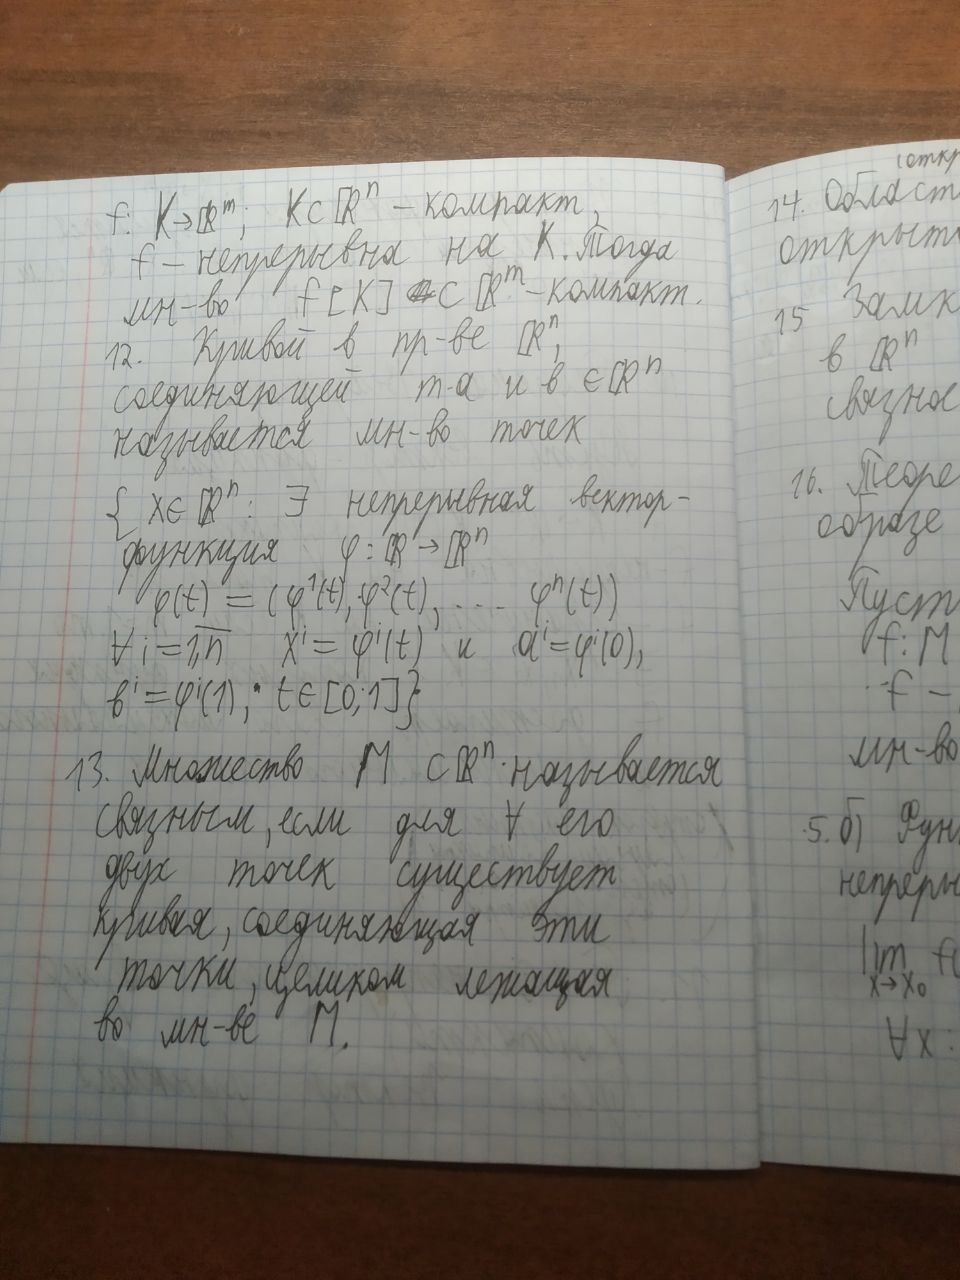 f: K→ℝᵐ; K⊂ℝⁿ – компакт,
f – непрерывна на K. Тогда
мн-во f[K] ⊂ ℝᵐ – компакт.
12. Кривой в пр-ве ℝⁿ,
соединяющей т-а и в ∈ ℝⁿ
называется мн-во точек
{ x∈ℝⁿ : ∃ непрерывная вектор-
функция φ: ℝ→ℝⁿ
φ(t) = (φ¹(t), φ²(t), .... φⁿ(t))
∀i=1,n̅ xⁱ=φⁱ(t) и aⁱ=φⁱ(0),
вⁱ=φⁱ(1), t∈[0;1]}
13. Множество M ⊂ℝⁿ называется
связным, если для ∀ его
двух точек существует
кривая, соединяющая эти
точки, целиком лежащая
во мн-ве M.
14. Област
открыт
15 Замк
в ℝⁿ
связное
16. Теоре
образе
Пуст
f: M
f –
мн-во
5. б) Фун
непреры
lim f
x→x₀
∀x :